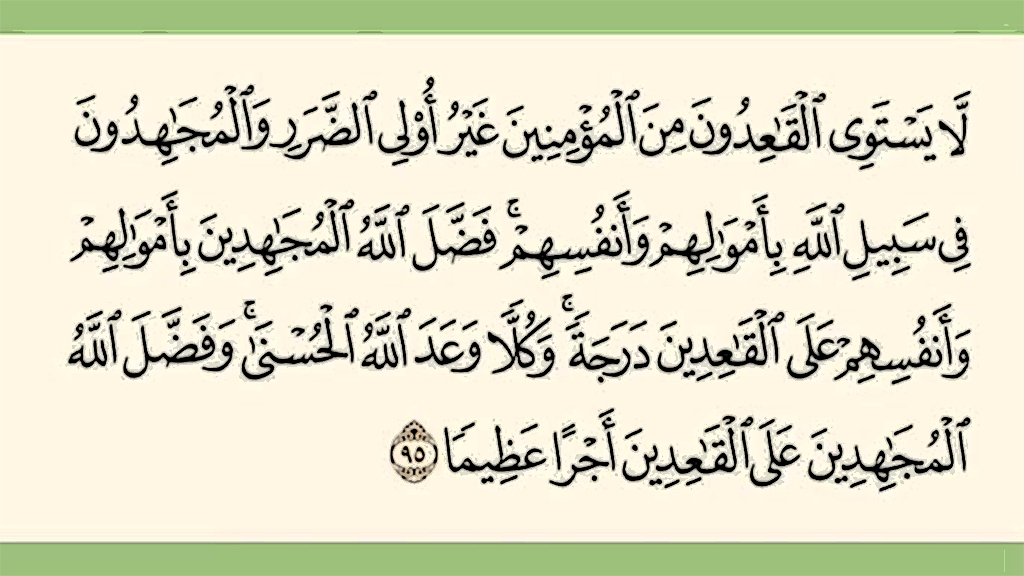 لَّا يَسْتَوِى ٱلْقَـٰعِدُونَ مِنَ ٱلْمُؤْمِنِينَ غَيْرُ أُو۟لِى ٱلضَّرَرِ وَٱلْمُجَـٰهِدُونَ
فِى سَبِيلِ ٱللَّهِ بِأَمْوَٰلِهِمْ وَأَنفُسِهِمْ ۚ فَضَّلَ ٱللَّهُ ٱلْمُجَـٰهِدِينَ بِأَمْوَٰلِهِمْ
وَأَنفُسِهِمْ عَلَى ٱلْقَـٰعِدِينَ دَرَجَةً ۚ وَكُلًّا وَعَدَ ٱللَّهُ ٱلْحُسْنَىٰ ۚ وَفَضَّلَ ٱللَّهُ
ٱلْمُجَـٰهِدِينَ عَلَى ٱلْقَـٰعِدِينَ أَجْرًا عَظِيمًا ٩٥